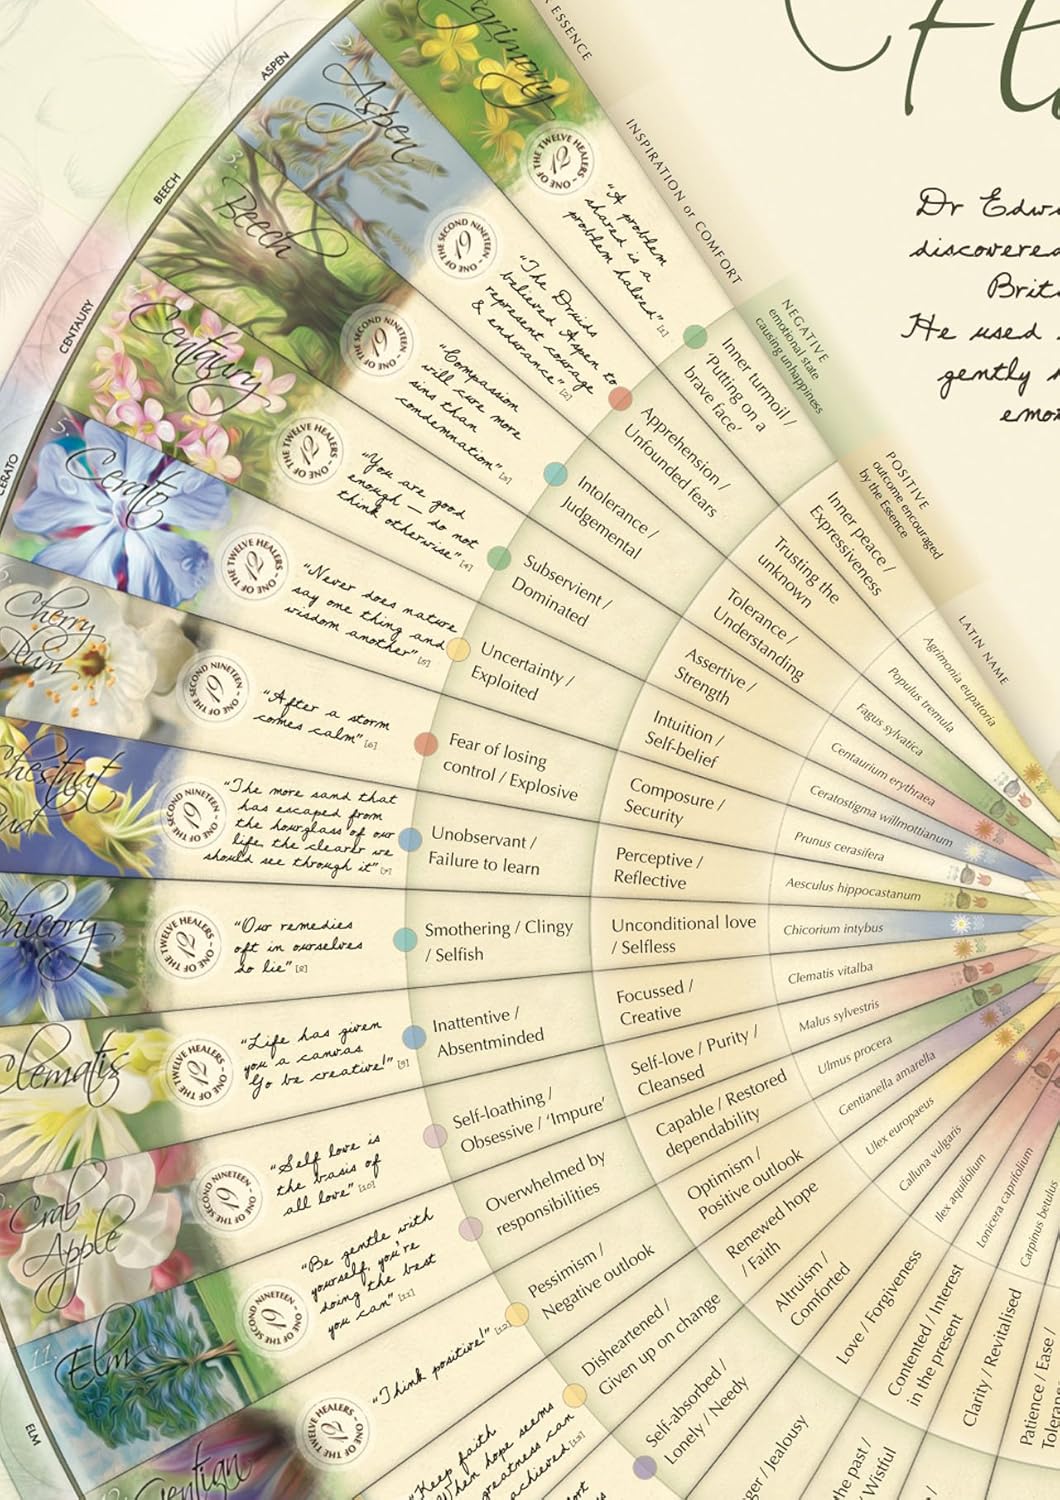 ESSENCE
INSPIRATION or COMFORT
NEGATIVE
emotional state
causing unhappiness
POSITIVE
outcome encouraged
by the Essence
LATIN NAME
Dr
discovered
He used
gently
Agrimony
ONE OF THE TWELVE HEALERS
12
"A problem
shared is a
problem halved" [1]
Inner turmoil /
'Putting on a
brave face'
Inner peace /
Expressiveness
Agrimonia eupatoria
ASPEN
2.
Aspen
ONE OF THE SECOND NINETEEN
19
"The Druids
believed Aspen to
represent courage
& endurance". [2]
Apprehension /
Unfounded fears
Trusting the
unknown
Populus tremula
BEECH
3.
Beech
ONE OF THE SECOND NINETEEN
19
"Compassion
will cure more
sins than
condemnation" [3]
Intolerance /
Judgemental
Tolerance /
Understanding
Fagus sylvatica
CENTAURY
4.
Centaury
ONE OF THE TWELVE HEALERS
12
"You are good
enough – do not
think otherwise" [4]
Subservient /
Dominated
Assertive /
Strength
Centaurium erythraea
CERATO
5.
Cerato
ONE OF THE TWELVE HEALERS
12
"Never does nature
say one thing and
wisdom another" [5]
Uncertainty /
Exploited
Intuition /
Self-belief
Ceratostigma willmottianum
6.
Cherry
Plum
ONE OF THE SECOND NINETEEN
19
"After a storm
comes calm" [6]
Fear of losing
control / Explosive
Composure /
Security
Prunus cerasifera
Chestnut
Bud
ONE OF THE SECOND NINETEEN
19
"The more sand that
has escaped from
the hourglass of our
life, the clearer we
should see through it" [7]
Unobservant /
Failure to learn
Perceptive /
Reflective
Aesculus hippocastanum
Chicory
ONE OF THE TWELVE HEALERS
12
"Our remedies
oft in ourselves
do lie" [8]
Smothering / Clingy
/ Selfish
Unconditional love
/ Selfless
Chicorium intybus
Clematis
ONE OF THE TWELVE HEALERS
12
"Life has given
you a canvas
Go be creative!" [9]
Inattentive /
Absentminded
Focussed /
Creative
Clematis vitalba
Crab
Apple
ONE OF THE SECOND NINETEEN
19
"Self love is
the basis of
all love" [10]
Self-loathing /
Obsessive / 'Impure'
Self-love / Purity /
Cleansed
Malus sylvestris
ELM
11.
Elm
ONE OF THE SECOND NINETEEN
19
"Be gentle with
yourself, you're
doing the best
you can" [11]
Overwhelmed by
responsibilities
Capable / Restored
dependability
Ulmus procera
Gentian
ONE OF THE TWELVE HEALERS
12
"Think positive!" [12]
Pessimism /
Negative outlook
Optimism /
Positive outlook
Gentianella amarella
"Keep faith
When hope seems
greatness can
achieved [13]
Disheartened /
Given up on change
Renewed hope
/ Faith
Ulex europaeus
Self-absorbed /
Lonely / Needy
Altruism /
Comforted
Calluna vulgaris
/ Jealousy
Love / Forgiveness
Ilex aquifolium
the past /
Wistful
Contented / Interest
in the present
Lonicera caprifolium
Clarity / Revitalised
Carpinus betulus
Patience / Ease /